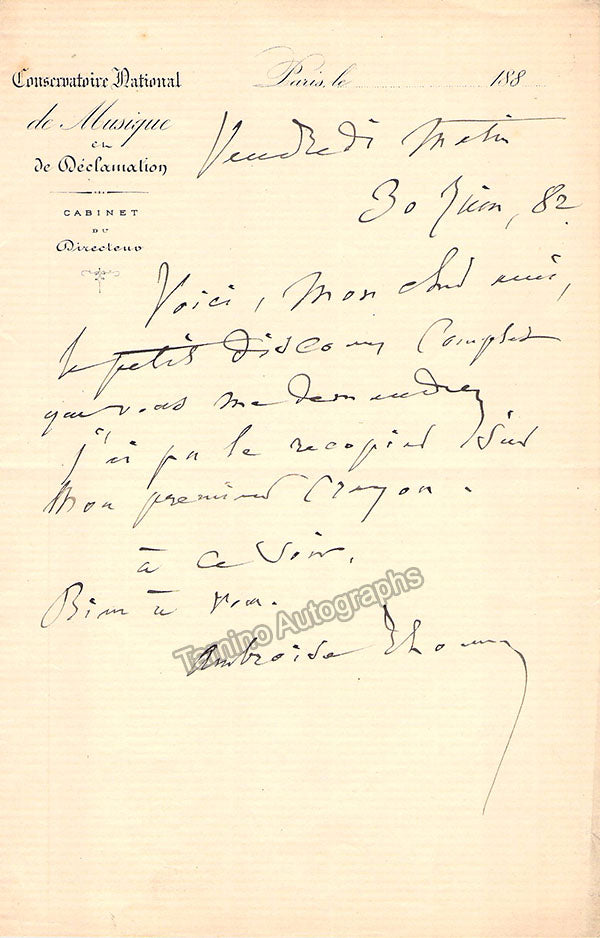 Conservatoire National
de Musique
et
de Déclamation
CABINET
DU
Directeur
Paris, le 188
Vendredi Matin
30 Juin, 82
Voici, mon cher ami,
le petit discours complet
que vous me demandiez
j'ai pu le recopier sur
mon premier crayon.
à ce soir.
Bien à vous.
Ambroise Thomas
Tamino Autographs